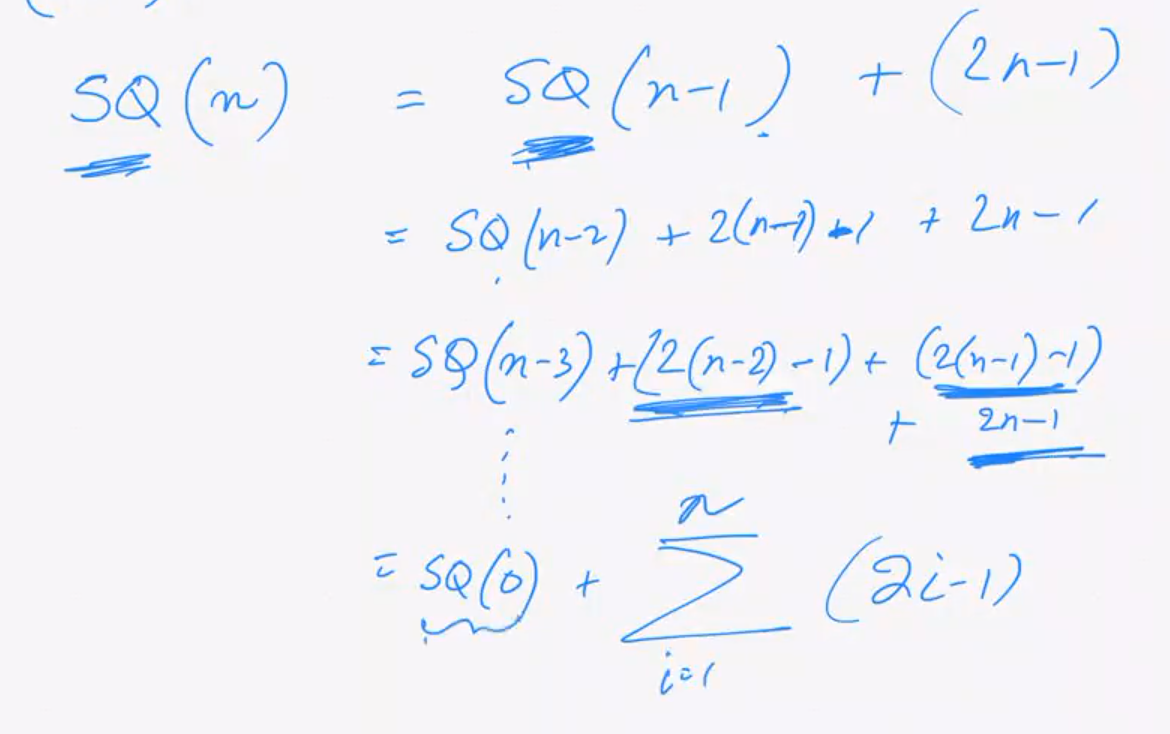 SQ(n) = SQ(n-1) + (2n-1)
= SQ(n-2) + 2(n-1)-1 + 2n-1
= SQ(n-3) + (2(n-2)-1) + (2(n-1)-1)
+ 2n-1
n
= SQ(0) + ∑ (2i-1)
i=1